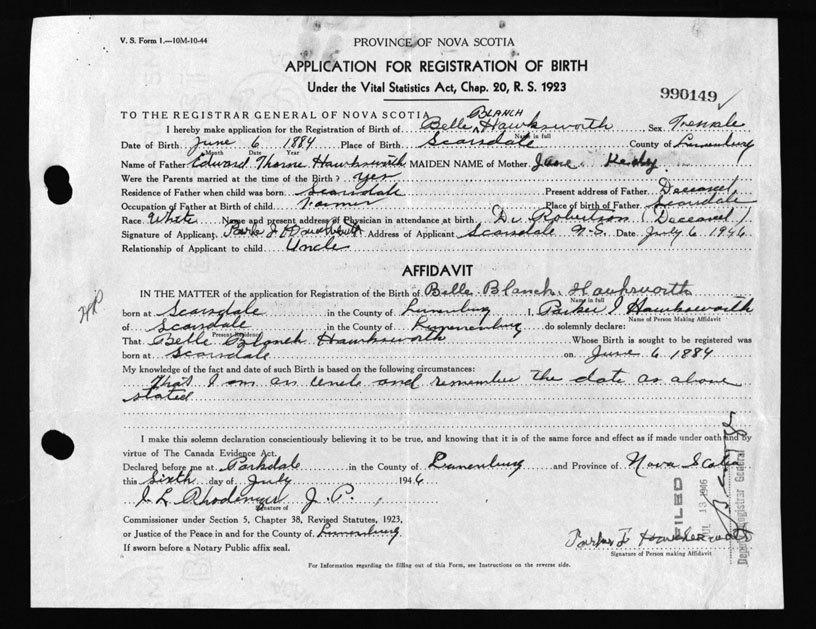 V. S. Form 1.—10M-10-44
PROVINCE OF NOVA SCOTIA
APPLICATION FOR REGISTRATION OF BIRTH
Under the Vital Statistics Act, Chap. 20, R. S. 1923
990149 ✓
TO THE REGISTRAR GENERAL OF NOVA SCOTIA
BLANCH
I hereby make application for the Registration of Birth of Belle Hawksworth Sex Female
Name in full
Date of Birth June 6 1884 Place of Birth Scarsdale County of Lunenburg
Month Date Year
Name of Father Edward Thorne Hawksworth MAIDEN NAME of Mother Jane
Were the Parents married at the time of the Birth? yes
Residence of Father when child was born Scarsdale Present address of Father Deceased
Occupation of Father at Birth of child Farmer Place of birth of Father Scarsdale
Race White Name and present address of Physician in attendance at birth Dr Robertson (Deceased)
Signature of Applicant Parker J Hawksworth Address of Applicant Scarsdale N.S. Date July 6 1946
Relationship of Applicant to child Uncle
AFFIDAVIT
IN THE MATTER of the application for Registration of the Birth of Belle Blanch Hawksworth
Name in full
born at Scarsdale in the County of Lunenburg I, Parker J Hawksworth
Name of Person Making Affidavit
of Scarsdale in the County of Lunnenburg do solemnly declare:
Present Residence
That Belle Blanch Hawksworth Whose Birth is sought to be registered was
born at Scarsdale on June 6 1884
My knowledge of the fact and date of such Birth is based on the following circumstances:
That I am an uncle and remember the date as above
stated
I make this solemn declaration conscientiously believing it to be true, and knowing that it is of the same force and effect as if made under oath and by
virtue of The Canada Evidence Act.
Declared before me at Parkdale in the County of Lunenburg and Province of Nova Scotia
this Sixth day of July 1946
J. P.
Signature of
Commissioner under Section 5, Chapter 38, Revised Statutes, 1923,
or Justice of the Peace in and for the County of Lunenburg
If sworn before a Notary Public affix seal.
Parker J Hawksworth
Signature of Person making Affidavit
FILED
JUL 13 1946
Deputy Registrar General
For Information regarding the filling out of this Form, see Instructions on the reverse side.